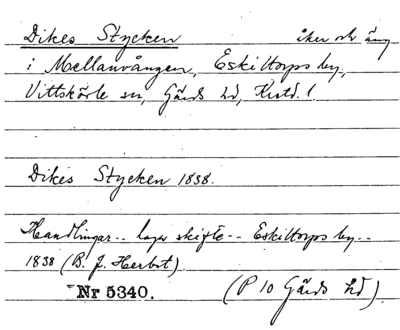 Dikes Stycken åker och äng
i Mellanvången, Eskiltorps by,
Vittskövle sn, Gärds hd, Krstd. l.
Dikes Stycken 1838.
Handlingar -- laga skifte -- Eskiltorps by --
1838 (B. J. Herbst)
Nr 5340. (P 10 Gärds hd)